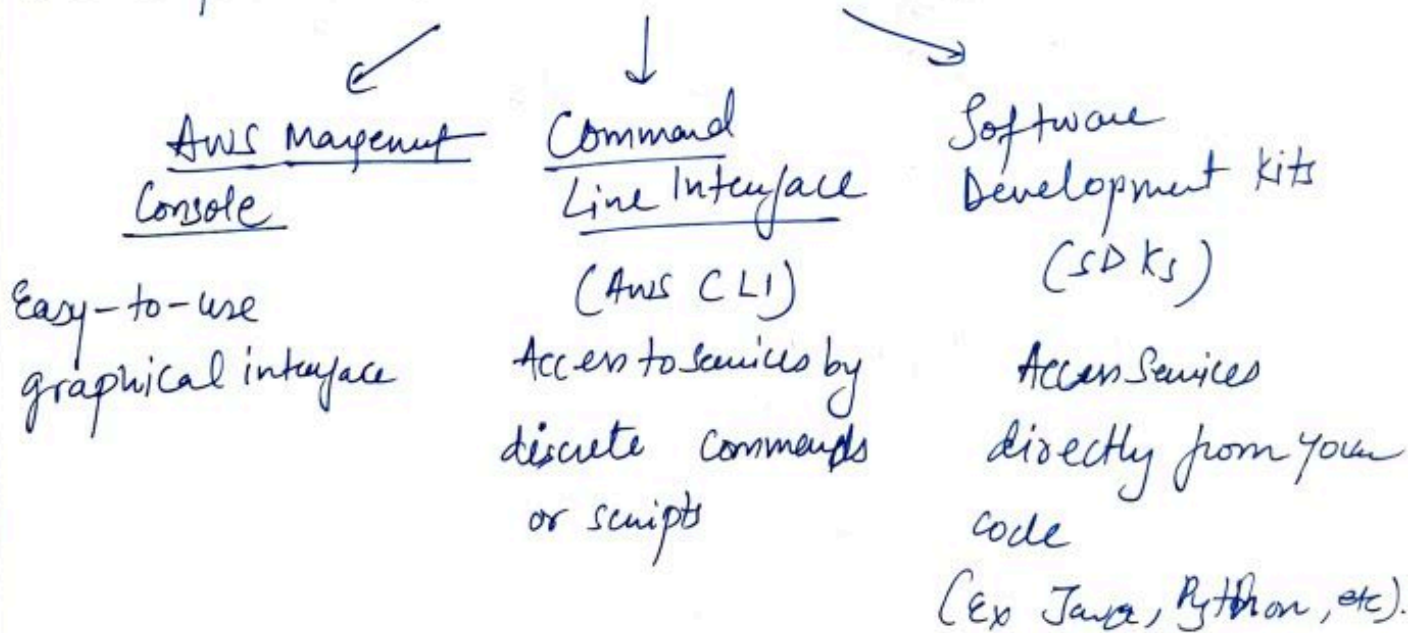 AWS Mangemnt
Console
Easy-to-use
graphical interface
Command
Line Interface
(AWS CLI)
Access to services by
discrete commands
or scripts
Software
Development Kits
(SDKs)
Access Services
directly from your
code
(Ex Java, Python, etc).